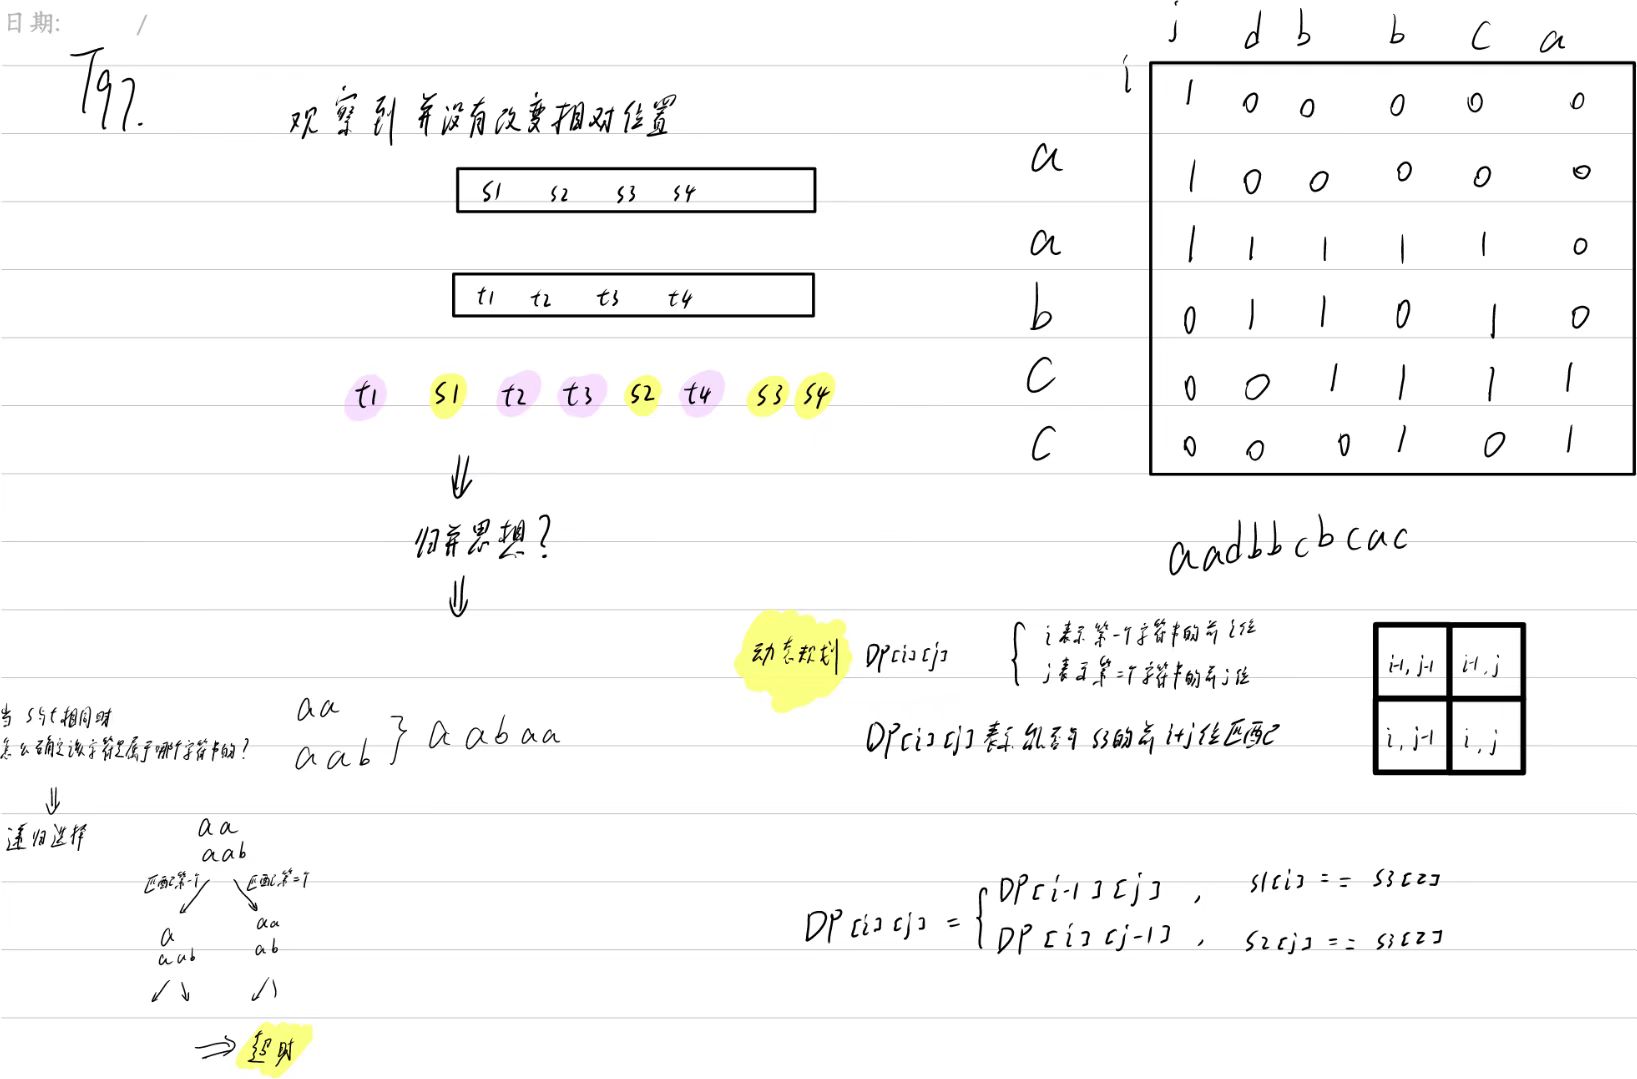 日期: /
T97.
观察到并没有改变相对位置
s1 s2 s3 s4
t1 t2 t3 t4
t1 s1 t2 t3 s2 t4 s3 s4
⇓
归并思想?
⇓
当 s与t相同时
怎么确定该字符是属于哪个字符串的?
aa
aab
} aabaa
⇓
递归选择
aa
aab
匹配第一个 匹配第二个
a
aab
aa
ab
⇒ 超时
j d b b c a
i 1 0 0 0 0 0
a 1 0 0 0 0 0
a 1 1 1 1 1 0
b 0 1 1 0 1 0
c 0 0 1 1 1 1
c 0 0 0 1 0 1
aadbbcbcac
动态规划 DP[i][j] { i表示第一个字符串的前i位
j表示第二个字符串的前j位
DP[i][j]表示能否与s3的前i+j位匹配
i-1, j-1 i-1, j
i, j-1 i, j
DP[i][j] = { DP[i-1][j] , s1[i] == s3[z]
DP[i][j-1] , s2[j] == s3[z]